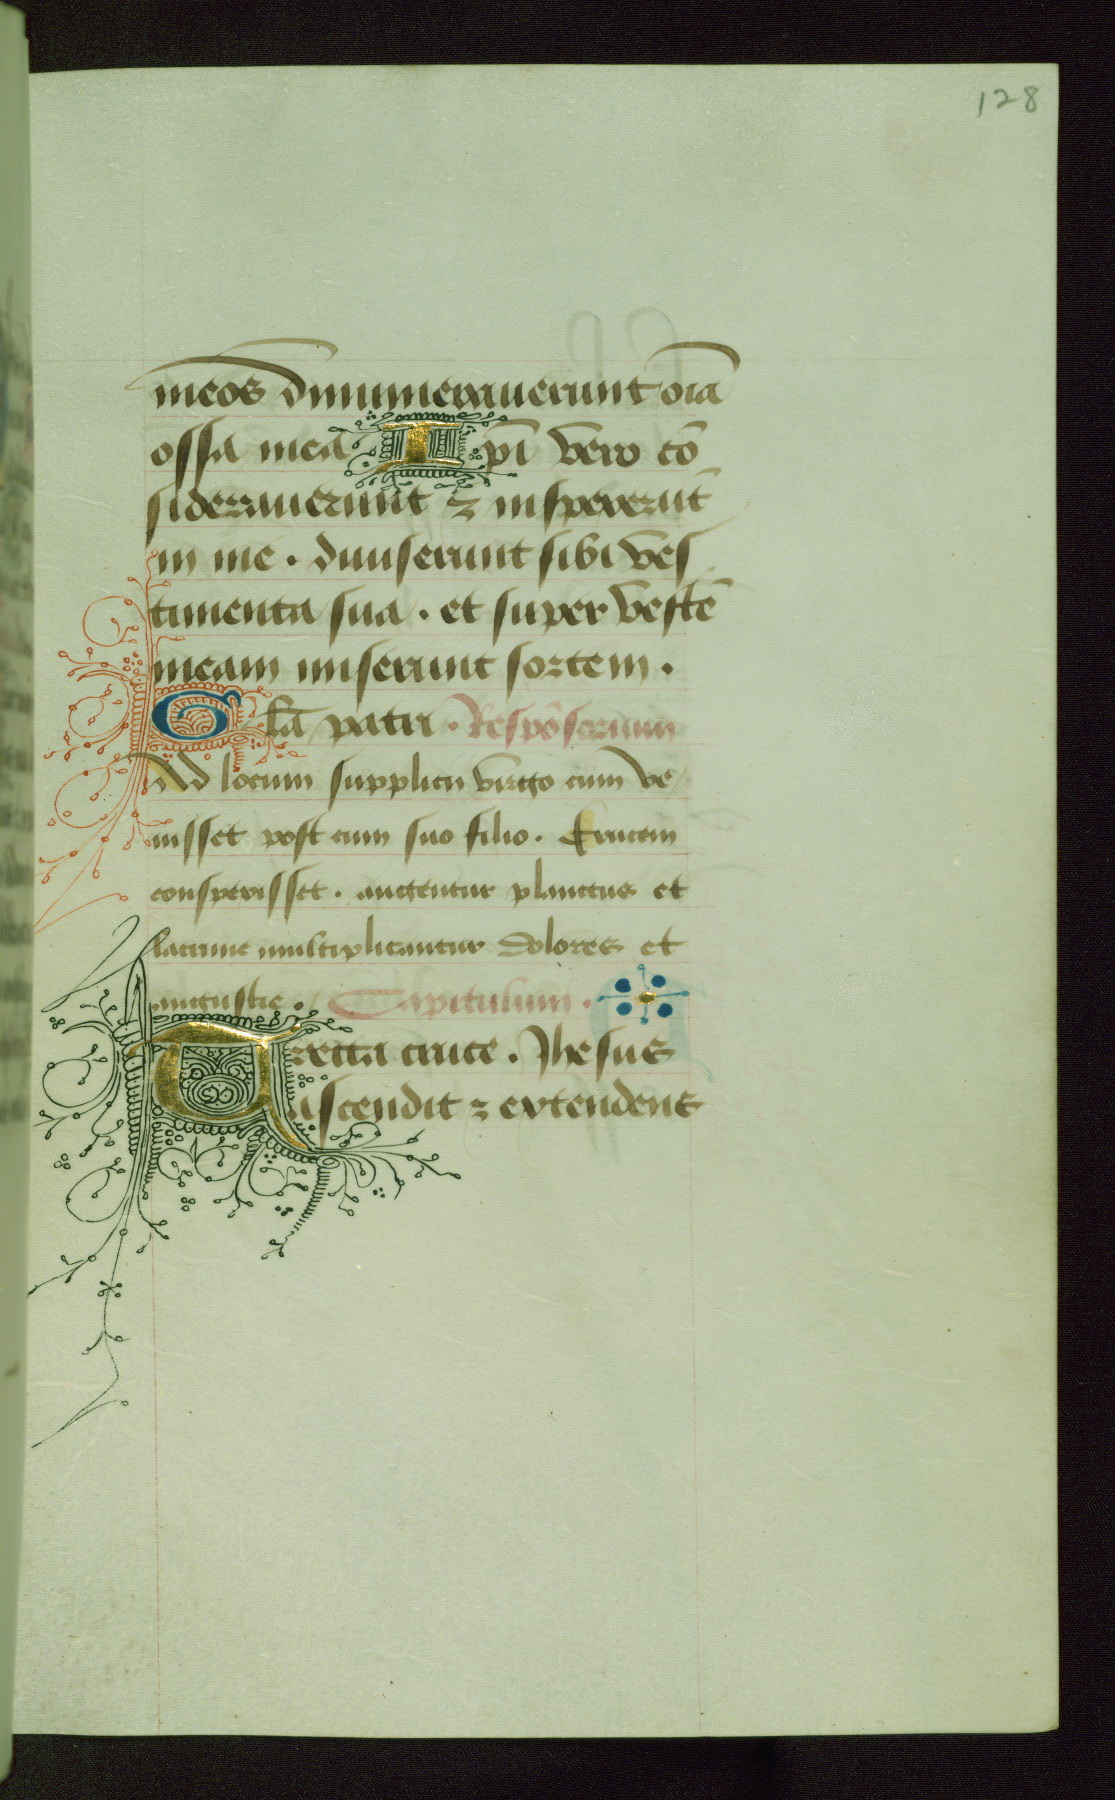 128
meos dinumerauerunt oīa
ossa mea Ipī vero cō
siderauerunt ⁊ inspexerūt
in me . diuiserunt sibi ves
timenta sua . et super vestē
meam miserunt sortem .
Glā patri . Respōsorium
Ad locum supplicii virgo cum ve
nisset post cum suo filio . Crucem
conspexisset . augentur planctus et
lacrime multiplicantur dolores et
angustie . Capitulum .
Erecta cruce . Jhesus
ascendit ⁊ extendens